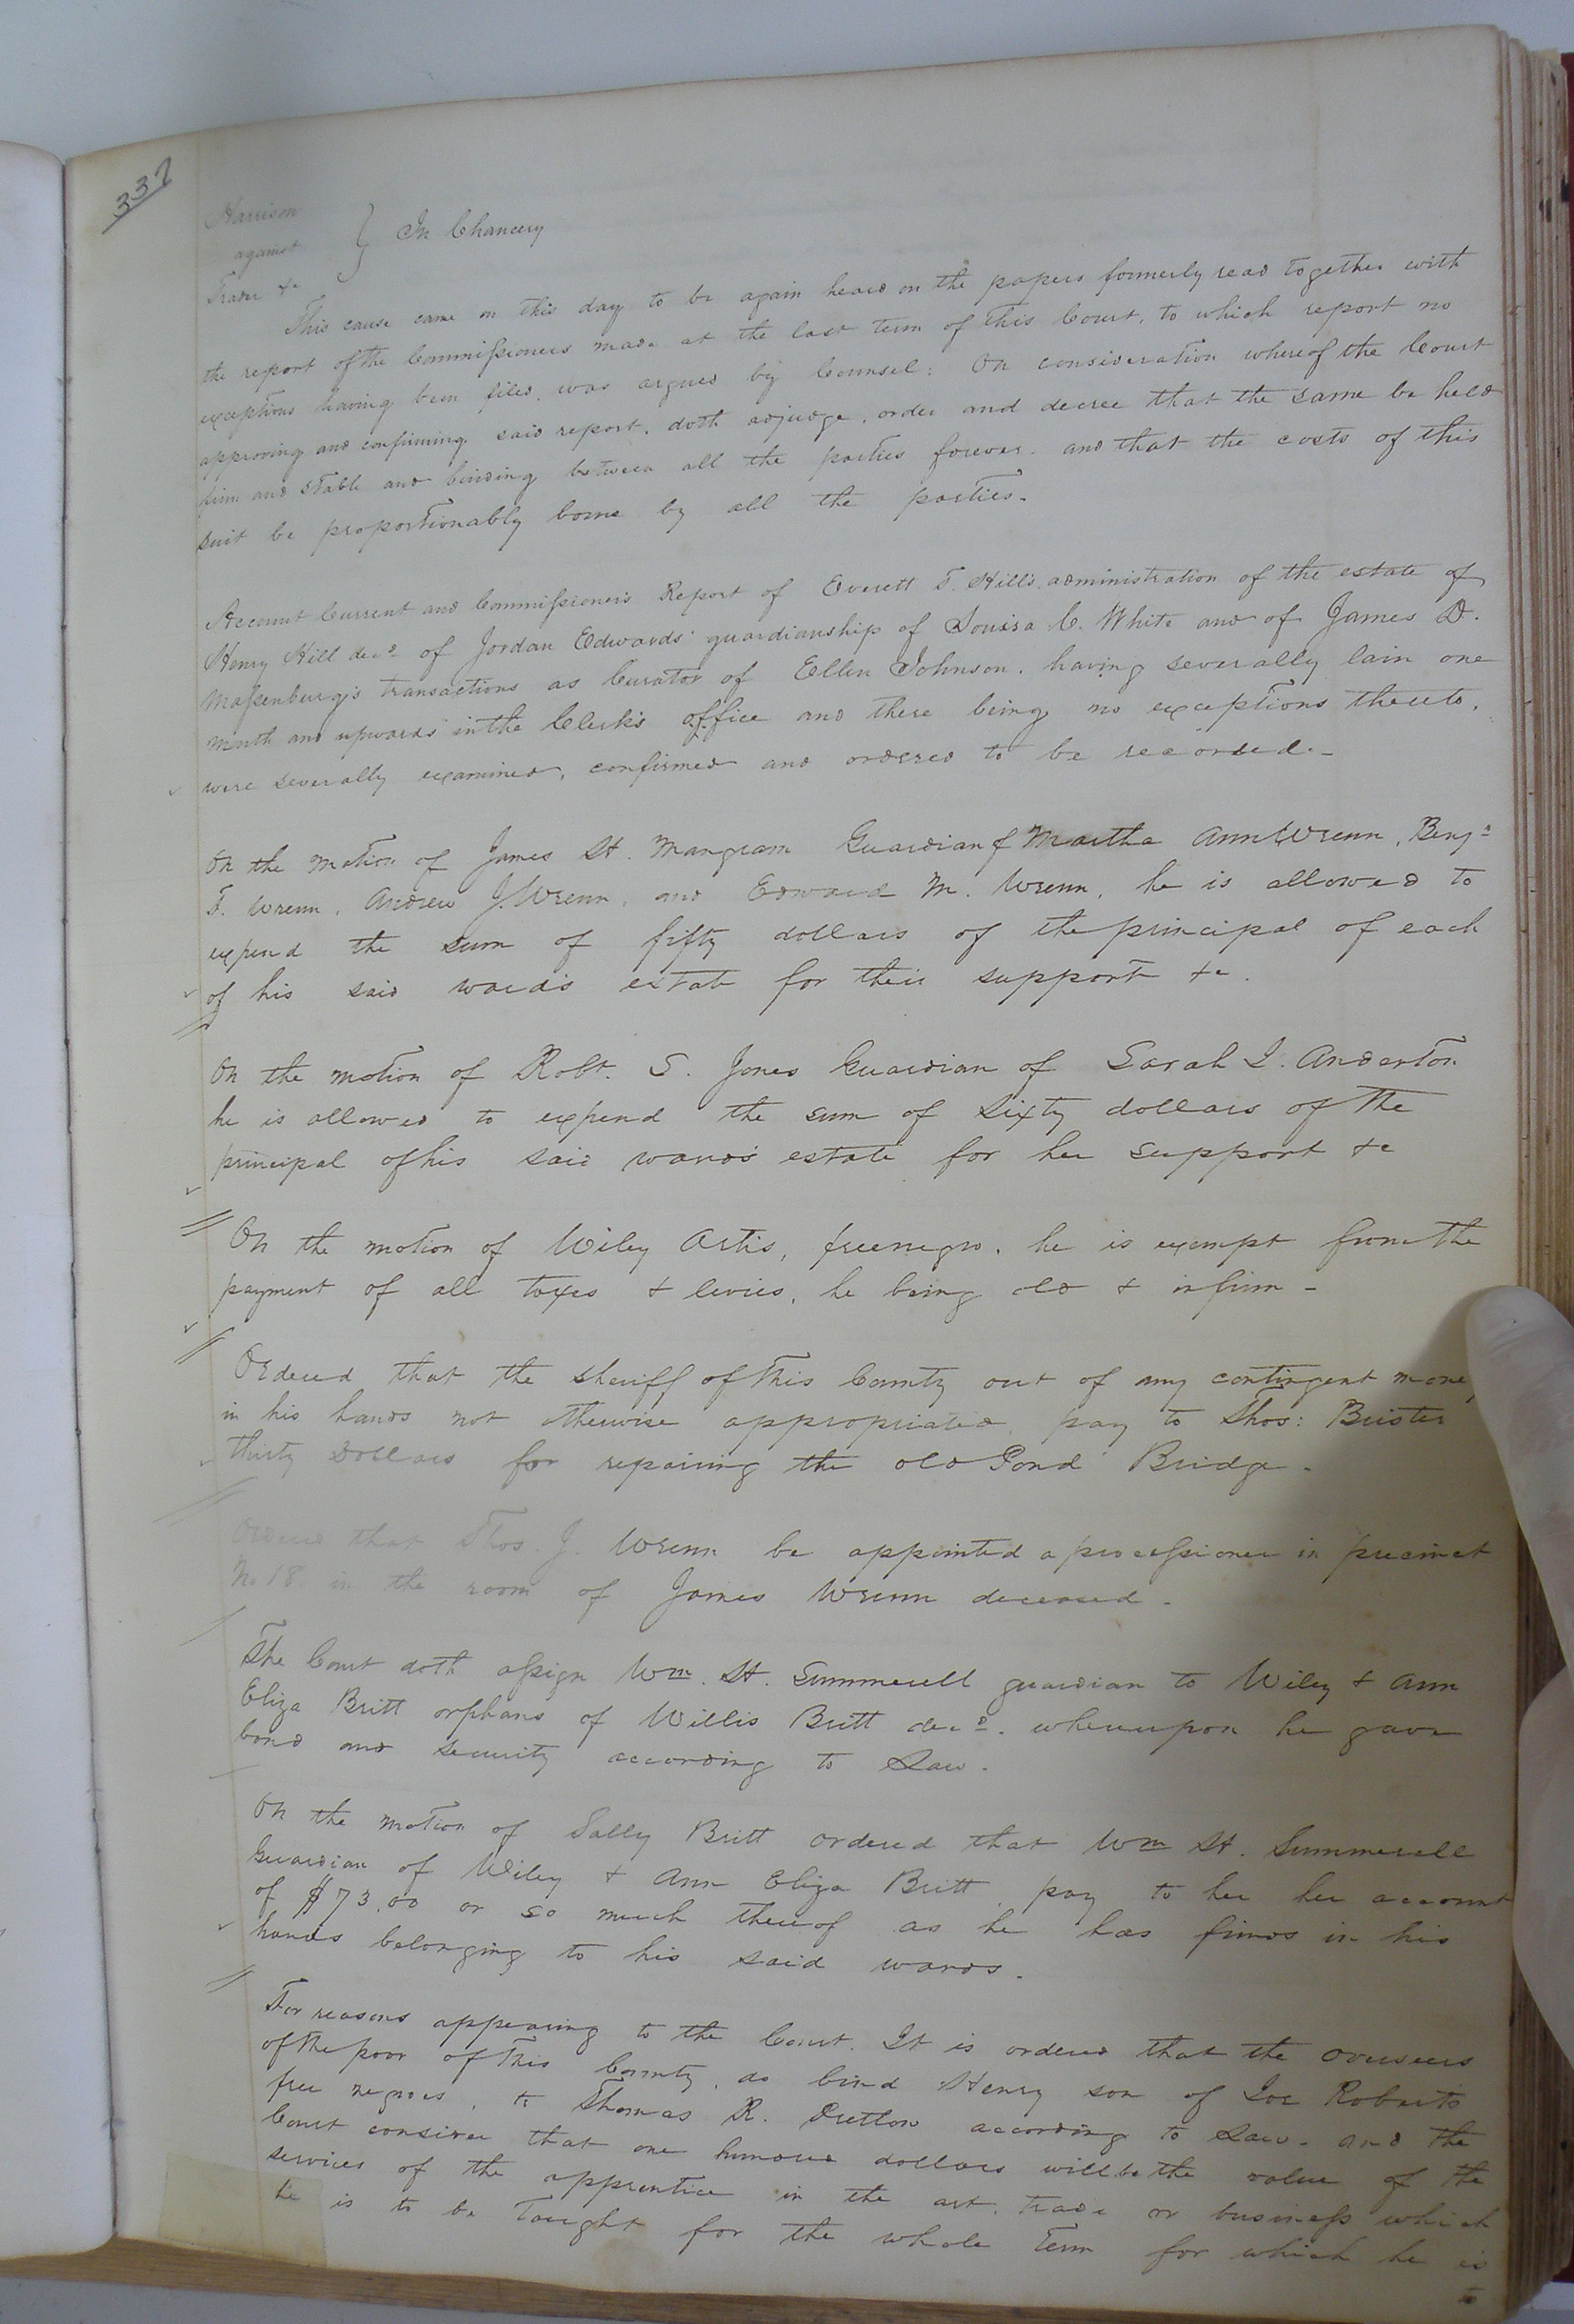 337
Harrison
against } In Chancery
Trader &c
This cause came on this day to be again heard on the papers formerly read together with
the report of the Commissioners made at the last term of this Court, to which report no
exceptions having been filed, was argued by Counsel: On consideration whereof the Court
approving and confirming said report, doth adjudge, order and decree that the same be held
firm and stable and binding between all the parties forever. and that the costs of this
suit be proportionably borne by all the parties.
Account Current and Commissioner's Report of Everett T. Hill's administration of the estate of
Henry Hill decd. of Jordan Edwards' guardianship of Louisa C. White and of James D.
Massenburg's transactions as Curator of Ellen Johnson, having severally lain one
month and upwards in the Clerk's office and there being no exceptions thereto,
were severally examined, confirmed and ordered to be recorded.
On the motion of James H. Mangram Guardian of Martha Ann Wrenn, Benja
F. Wrenn, Andrew J. Wrenn, and Edward M. Wrenn, he is allowed to
expend the sum of fifty dollars of the principal of each
of his said ward's estate for their support &c.
On the motion of Robt. S. Jones Guardian of Sarah I. Anderton
he is allowed to expend the sum of sixty dollars of the
principal of his said ward's estate for her support &c
On the motion of Wiley Artis, free negro, he is exempt from the
payment of all taxes & levies, he being old & infirm -
Ordered that the Sheriff of this County out of any contingent money
in his hands not otherwise appropriated, pay to Thos: Brister
thirty Dollars for repairing the old Pond Bridge.
Ordered that Thos. J. Wrenn be appointed a processioner in precinct
No 18. in the room of James Wrenn deceased.
The Court doth assign Wm. H. Summerell guardian to Wiley & Ann
Eliza Britt orphans of Willis Britt decd. whereupon he gave
bond and security according to Law.
On the motion of Sally Britt ordered that Wm H. Summerell
Guardian of Wiley & Ann Eliza Britt, pay to her her account
of $73.00 or so much thereof as he has funds in his
hands belonging to his said wards.
For reasons appearing to the Court. It is ordered that the overseers
of the poor of this County, do bind Henry son of Joe Roberts
free negroes, to Thomas R. Pretlow according to Law. and the
Court consider that one hundred dollars will be the value of the
services of the apprentice in the art, trade or business which
he is to be taught for the whole Term for which he is
to